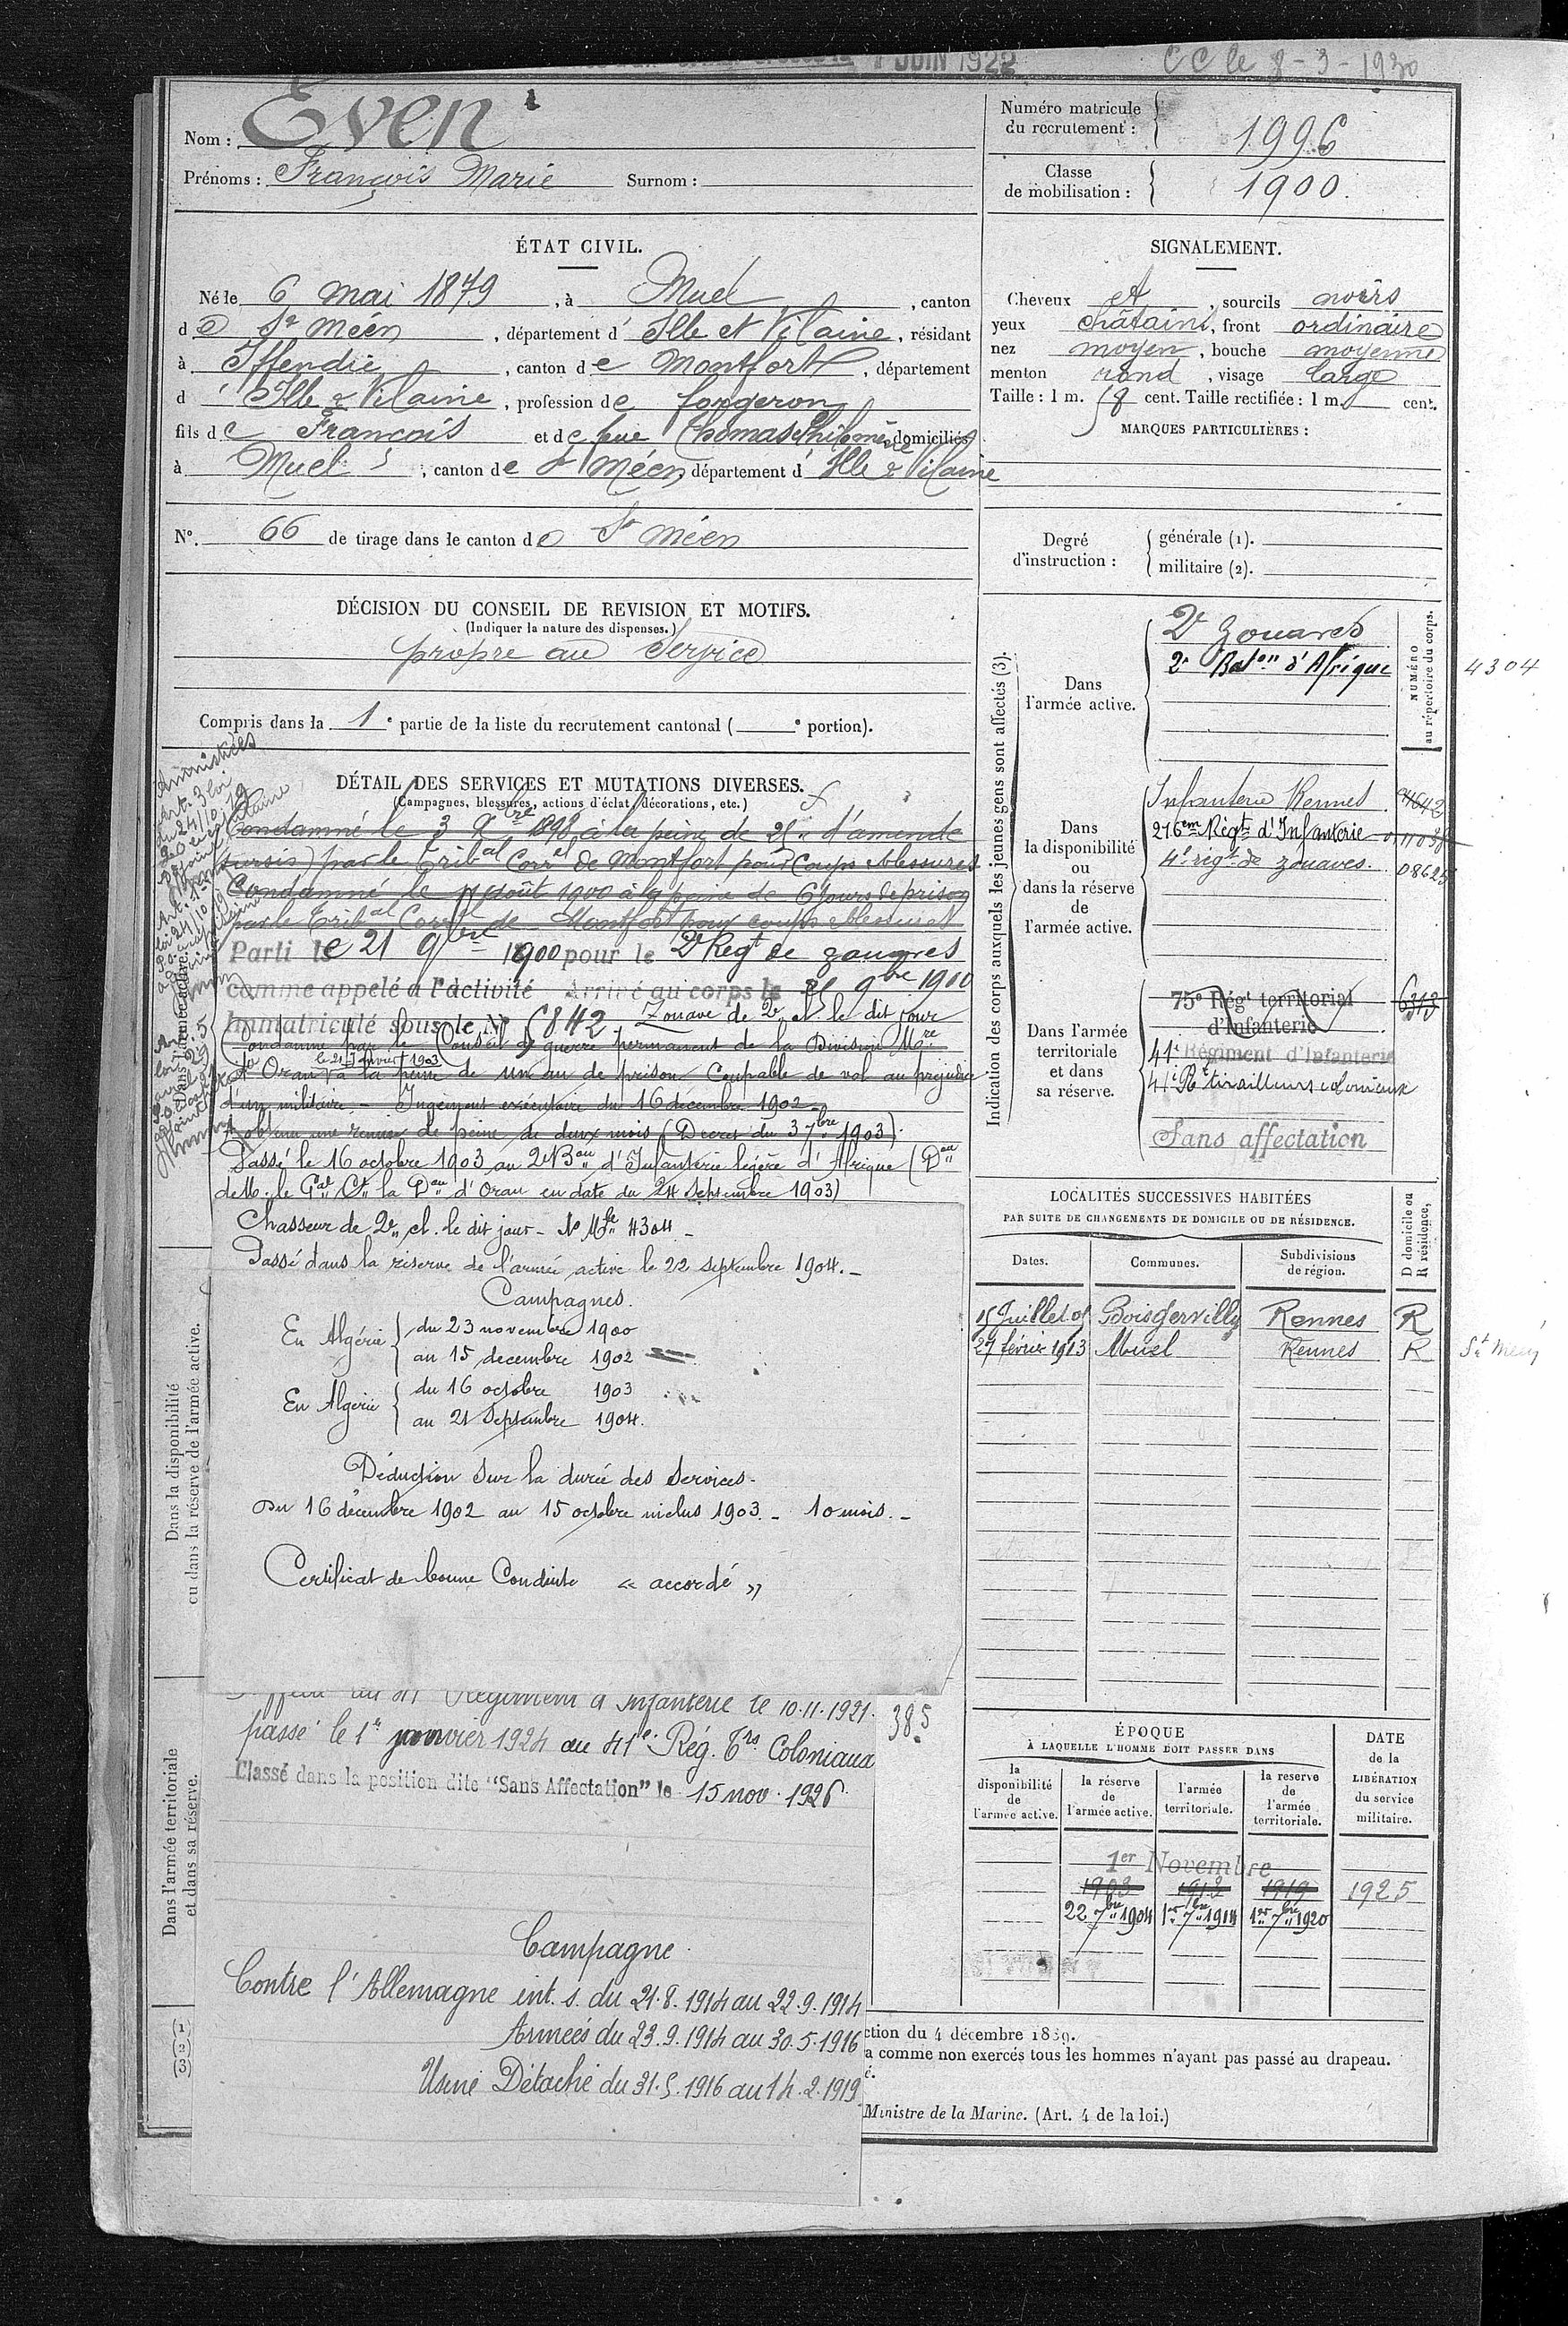 JUIN 1922
CC le 8-3-1930
Nom : Even
Prénoms : François Marie Surnom :
Numéro matricule
du recrutement : 1996
Classe
de mobilisation : 1900.
ÉTAT CIVIL.
Né le 6 mai 1879, à Muel, canton
de St Méen, département d' Ille et Vilaine, résidant
à Iffendic, canton de Montfort, département
d' Ille & Vilaine, profession de forgeron
fils de François et de feue Thomas Philomène domiciliés
à Muel, canton de St Méen, département d' Ille & Vilaine
N°. 66 de tirage dans le canton de St Méen
SIGNALEMENT.
Cheveux et, sourcils noirs
yeux châtains, front ordinaire
nez moyen, bouche moyenne
menton rond, visage large
Taille : 1 m. 58 cent. Taille rectifiée : 1 m. cent.
MARQUES PARTICULIÈRES :
Degré
d'instruction :
générale (1).
militaire (2).
DÉCISION DU CONSEIL DE REVISION ET MOTIFS.
(Indiquer la nature des dispenses.)
propre au Service
Compris dans la 1e partie de la liste du recrutement cantonal ( e portion).
DÉTAIL DES SERVICES ET MUTATIONS DIVERSES.
(Campagnes, blessures, actions d'éclat, décorations, etc.)
Condamné le 3 1898, à la peine de 25 " d'amende
(sursis) par le Tribal Correl de Montfort pour Coups & blessures
Condamné le 11 août 1900 à la peine de 6 jours de prison
par le Tribal Correl de Montfort pour coups & blessures
Parti le 21 9bre 1900 pour le 2e Regt de zouaves
comme appelé à l'activité Arrivé au corps le 21 9bre 1900
Immatriculé sous le N° 5842. Zouave de 2e cl. le dit jour
Condamné par le Conseil de guerre permanent de la Division Mre
d'Oran le 21 janvier 1903 à la peine de un an de prison Coupable de vol au préjudice
d'un militaire. - Jugement exécutoire du 16 décembre 1902 -
A obtenu une remise de peine de deux mois (Decret du 3 7bre 1903).
Passé le 16 octobre 1903 au 2e Bon d'Infanterie légère d'Afrique (Don
de M. le Gal Ct la Don d'Oran en date du 24 Septembre 1903)
Chasseur de 2e cl. le dit jour - N° Mle 4304 -
Passé dans la réserve de l'armée active le 22 septembre 1904. -
Campagnes.
En Algérie { du 23 novembre 1900
au 15 decembre 1902
En Algérie { du 16 octobre 1903
au 21 Septembre 1904.
Déduction sur la durée des services -
Du 16 décembre 1902 au 15 octobre inclus 1903 - 10 mois. -
Certificat de bonne Conduite « accordé »
Régiment d'Infanterie le 10.11.1921.
385
passé le 1er janvier 1924 au 41e Rég. Trs Coloniaux
Classé dans la position dite "Sans Affectation" le 15 nov. 1926.
Campagne
Contre l'Allemagne int. s. du 21.8.1914 au 22.9.1914
Armées du 23.9.1914 au 30.5.1916
Usine Détaché du 31.5.1916 au 14.2.1919
Dans l'armée active.
Dans la disponibilité
ou dans la réserve de l'armée active.
Dans l'armée territoriale
et dans sa réserve.
(1)
(2)
(3)
Indication des corps auxquels les jeunes gens sont affectés (3).
Dans
l'armée active.
2e Zouaves
2e Baton d'Afrique
NUMÉRO
au répertoire du corps.
4304
Dans
la disponibilité
ou
dans la réserve
de
l'armée active.
Infanterie Rennes
216eme Régt d'Infanterie
4e régt de zouaves. 08625
Dans l'armée
territoriale
et dans
sa réserve.
75e Régt territorial 6313
d'Infanterie
41e Régiment d'Infanterie
41e Rt tirailleurs coloniaux
Sans affectation
LOCALITÉS SUCCESSIVES HABITÉES
PAR SUITE DE CHANGEMENTS DE DOMICILE OU DE RÉSIDENCE.
D domicile ou
R résidence,
Dates. Communes. Subdivisions
de région.
15 Juillet 05 Boisgervilly Rennes R
27 février 1913 Muel Rennes R St Méen
ÉPOQUE
À LAQUELLE L'HOMME DOIT PASSER DANS
la
disponibilité
de
l'armée active.
la réserve
de
l'armée active.
l'armée
territoriale.
la reserve
de
l'armée
territoriale.
DATE
de la
LIBÉRATION
du service
militaire.
1er Novembre
1903 1913 1919 1925
22 7bre 1904 1er 7bre 1914 1er 7bre 1920
ction du 4 décembre 1889.
a comme non exercés tous les hommes n'ayant pas passé au drapeau.
é.
Ministre de la Marine. (Art. 4 de la loi.)